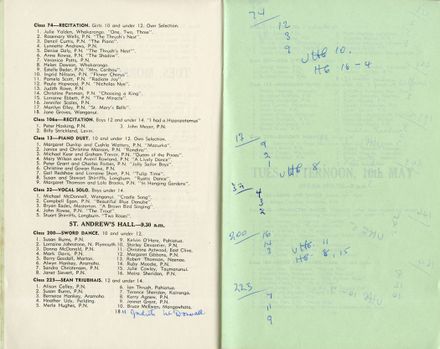 Class 74—RECITATION. Girls 10 and under 12. Own Selection.
1. Julie Yalden, Whakarongo. "One, Two, Three".
2. Rosemary Wells, P.N. "The Thrush's Nest".
3. Denzil Curtis, P.N. "The Piano".
4. Lynnette Andrews, P.N.
5. Denise Daly, P.N. "The Thrush's Nest".
6. Anne Rowse, P.N. "The Shadow".
7. Veronica Potts, P.N.
8. Helen Dawson, Whakarongo.
9. Estelle Bader, P.N. "Mrs. Caribou".
10. Ingrid Nilsson, P.N. "Flower Chorus"
11. Pamela Scott, P.N. "Radiant Joy".
12. Paula Hopwood, P.N. "Nicholas Nye".
13. Judith Rowe, P.N.
14. Christine Penman, P.N. "Choosing a King".
15. Lorraine Ebbett, P.N. "The Miracle".
16. Jennifer Scoles, P.N.
17. Marilyn Elley, P.N. "St. Mary's Bells".
18. Jane Groves, Wanganui.
Class 106a—RECITATION. Boys 12 and under 14. "I had a Hippopotamus"
1. Peter Hosking, P.N.
2. Billy Strickland, Levin.
3. John Meyer, P.N.
Class 13—PIANO DUET. 10 and under 12. Own Selection.
1. Margaret Dunlop and Cushla Watters, P.N. "Mazurka".
2. Janice and Christine Manson, P.N.
3. Michael Kear and Graham Trevor, P.N. "Dance of the Pixies"
4. Mary Wilson and Averil Rowland, P.N. "A Lively Dance"
5. Peter Grant and Charles Forbes, P.N. "Jolly Sailor Boys"
6. Christine and Gereen Rowe, P.N.
7. Gail Redshaw and Lorraine Shan, P.N. "Tulip Time".
8. Susan and Stewart Shirriffs, Longburn. "Rustic Dance".
9. Margaret Thomson and Lois Brooks, P.N. "In Hanging Gardens".
Class 32—VOCAL SOLO. Boys under 14.
1. Michael McDonnell, Wanganui. "Cradle Song"
2. Campbell Egan, P.N. "Beautiful Blue Danube".
3. Bryan Eades, Masterton. "A Brown Bird Singing"
4. John Rowse, P.N. "The Trout"
5. Stuart Shirriffs, Longburn. "Two Roses".
ST. ANDREW'S HALL—9.30 a.m.
Class 200—SWORD DANCE. 10 and under 12.
1. Susan Burns, P.N.
2. Lorraine Johnstone, N. Plymouth
3. Donna McDonald, P.N.
4. Mark Davis, P.N.
5. Barry Goodall, Marton.
6. Alwyn Hankey, Aramoho.
7. Sandra Christensen, P.N.
8. Janet Sievert, P.N.
9. Kelvin O'Hare, Pahiatua.
10. Shirley Devantier, P.N.
11. Christine Elmsand, East Clive.
12. Margaret Gibbons, P.N.
13. Robert Thomson, Naenae.
14. Ruby Moodie, P.N.
15. Julie Coxley, Taumarunui.
16. Moira Sheridan, P.N.
Class 223—SEAN TRIUBHAIS. 12 and under 14.
1. Alison Catley, P.N.
2. Susan Burns, P.N.
3. Bernadee Hankey, Aramoho
4. Heather Udy, Feilding
5. Merle Hughes, P.N.
6. Ian Thrush, Pahiatua.
7. Terence Sheridan, Kairanga.
8. Kerry Agnew, P.N.
9. Jannet Grant, P.N.
10. Bruce McEwan, Mangawhata.
11 Judith McDowall
74
12
3
9
VHC 10.
HC 16 - 4
13
9
2
1
VHC 8
32
4
3
2
200
16
12
3
VHC 11
HC 8, 15
223
7
11
9